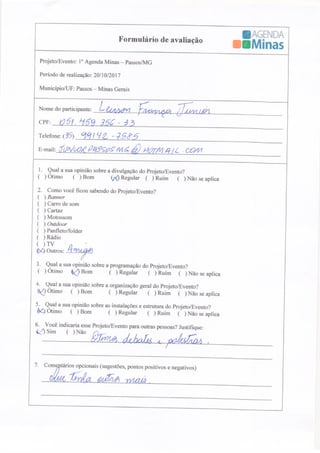 Formulário de avaliação
AGENDA
Minas
Projeto/Evento: 1ª Agenda Minas – Passos/MG
Período de realização: 20/10/2017
Município/UF: Passos – Minas Gerais
Nome do participante: França Junior
CPF: 051.459.356-33
Telefone: (35) 99142-7585
E-mail: JUNIORPASSOSMG@HOTMAIL.COM
1. Qual a sua opinião sobre a divulgação do Projeto/Evento?
( ) Ótimo ( ) Bom (x) Regular ( ) Ruim ( ) Não se aplica
2. Como você ficou sabendo do Projeto/Evento?
( ) Banner
( ) Carro de som
( ) Cartaz
( ) Motossom
( ) Outdoor
( ) Panfleto/folder
( ) Rádio
( ) TV
(x) Outros: Amigos
3. Qual a sua opinião sobre a programação do Projeto/Evento?
( ) Ótimo (x) Bom ( ) Regular ( ) Ruim ( ) Não se aplica
4. Qual a sua opinião sobre a organização geral do Projeto/Evento?
(x) Ótimo ( ) Bom ( ) Regular ( ) Ruim ( ) Não se aplica
5. Qual a sua opinião sobre as instalações e estrutura do Projeto/Evento?
(x) Ótimo ( ) Bom ( ) Regular ( ) Ruim ( ) Não se aplica
6. Você indicaria esse Projeto/Evento para outras pessoas? Justifique:
(x) Sim ( ) Não
Ótimos debates e palestras.
7. Comentários opcionais (sugestões, pontos positivos e negativos)
Que tenha outros mais